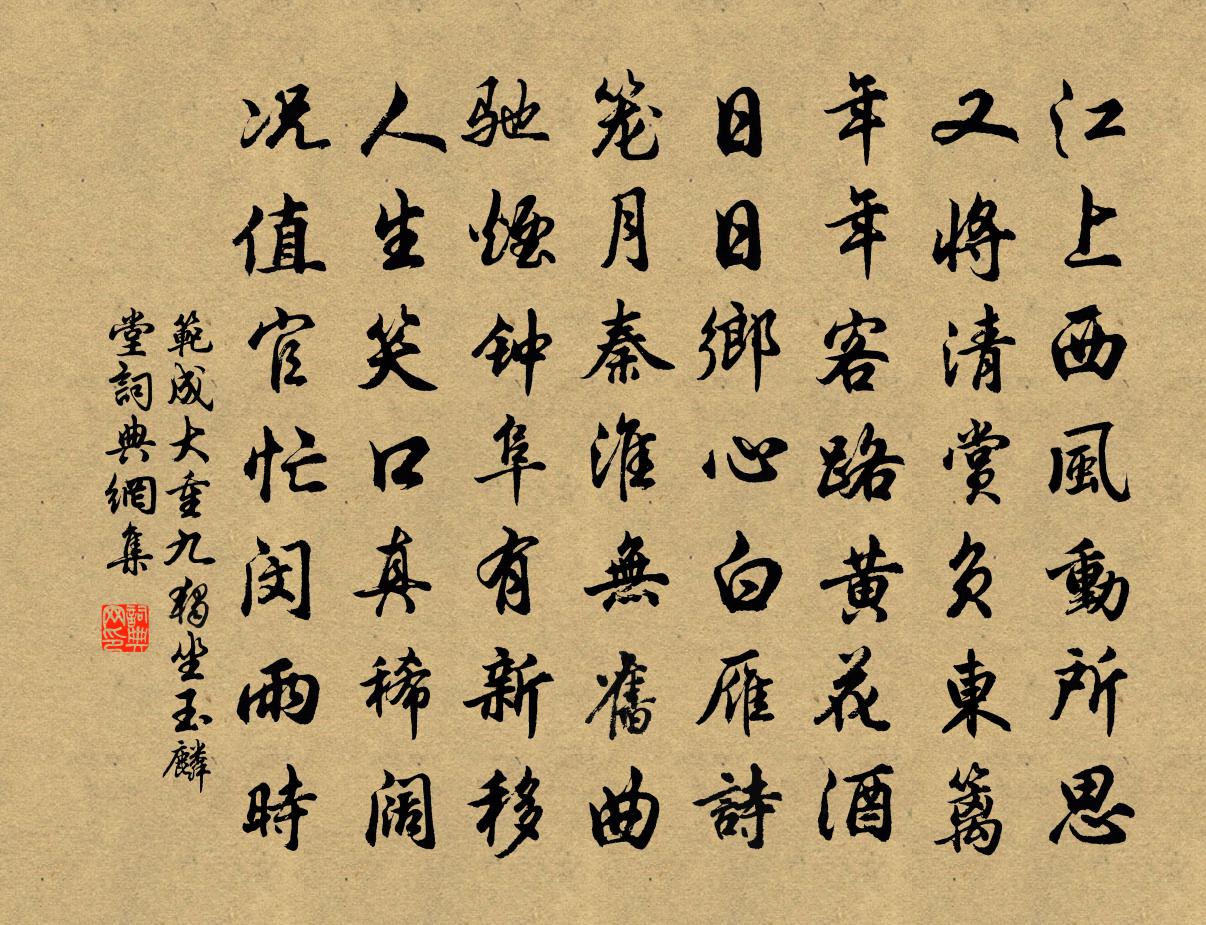 江上西風動所思
又將清賞負東籬
年年客路黃花酒
日日鄉心白雁詩
笼月秦淮無舊曲
驰煙钟阜有新移
人生笑口真稀阔
况值官忙闵雨時
範成大重九獨坐玉麟
堂詞典網集
詞典
网印